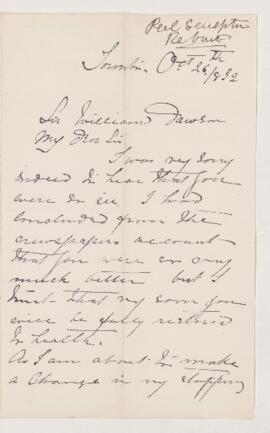 Peel Sculptor
Re bust
Toronto. Oct 26th/892
Sir William Dawson
My Dear Sir
I was very sorry
indeed to hear that you
were so ill. I had
concluded from the
newspapers account
that you were so very
much better but I
trust that very soon you
will be fully restored
to health.
As I am about to make
a change in my stopping